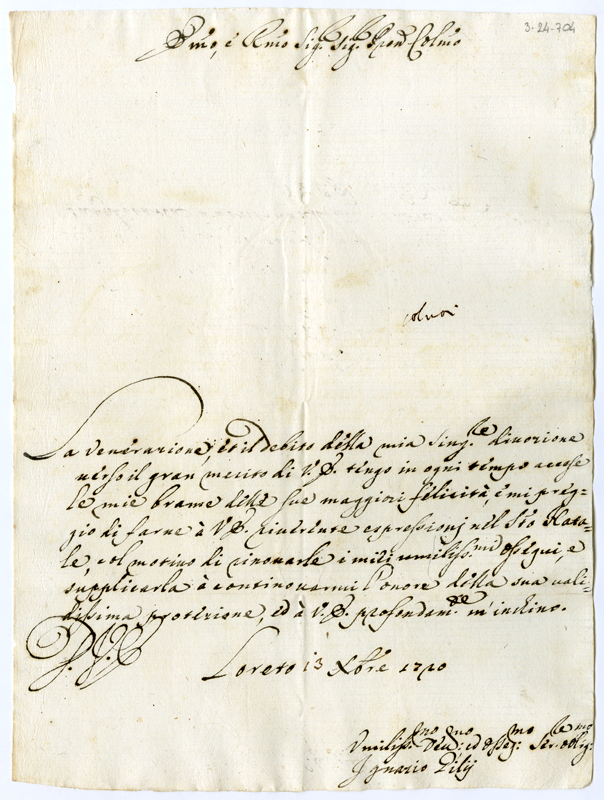 3-24-704
Illmo, è Rmo Sig.r Sig.r Pron Colmo
La venerazione, et il debito della mia sing.le divozione
verso il gran merito di V.S. tengo in ogni tempo accese
le mie brame delle sue maggiori felicità, e mi preg=
gio di farne à V.S. riverente espressionj nel Sto Nata=
le, col motivo di rinovarle i miei umiliss.mi ossequi, e
supplicarla à continovarmi l'onore della sua vali=
dissima protezione, ed à V.S. profondam.te m'inchino.
D. V. S.
Loreto 13 Xbre 1710
Umiliss.mo Deu.mo ed osseq.mo Ser.le oblig.mo
Ignazio Pilij